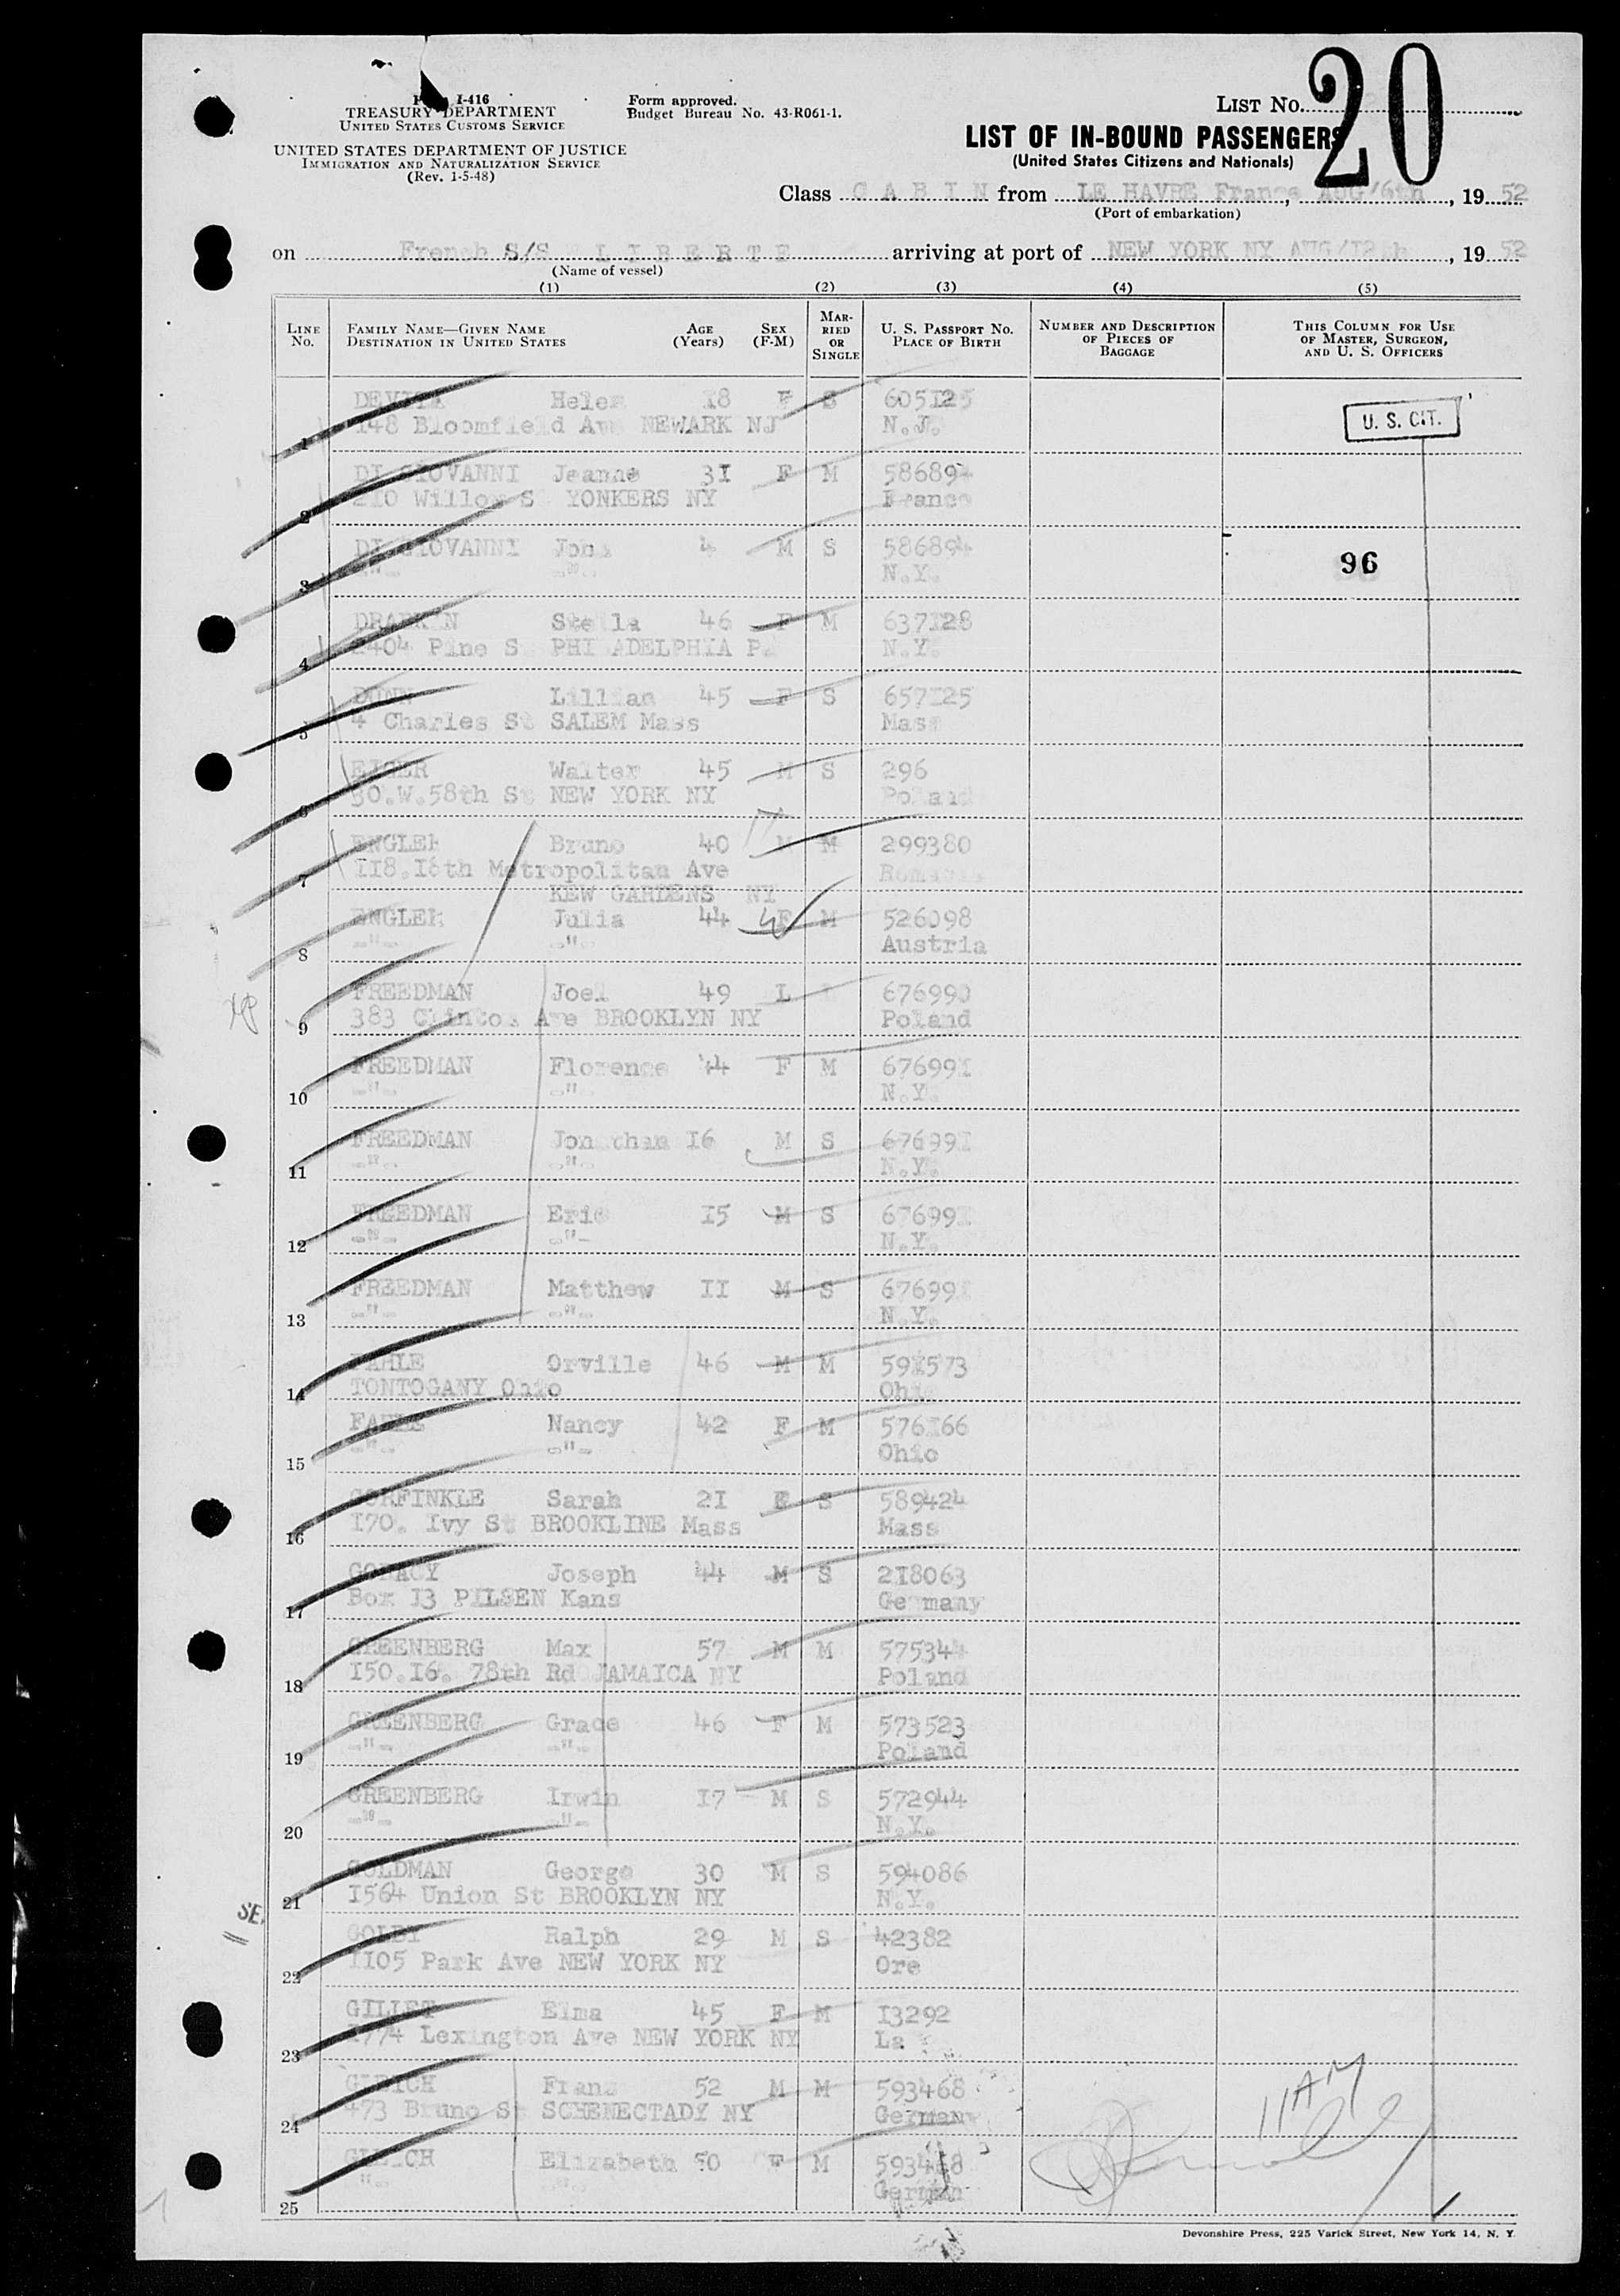 Form I-416
TREASURY DEPARTMENT
UNITED STATES CUSTOMS SERVICE
UNITED STATES DEPARTMENT OF JUSTICE
IMMIGRATION AND NATURALIZATION SERVICE
(Rev. 1-5-48)
Form approved.
Budget Bureau No. 43-R061-1.
LIST NO. 20
LIST OF IN-BOUND PASSENGERS
(United States Citizens and Nationals)
Class C A B I N from LE HAVRE France, AUG/6th, 19 52
(Port of embarkation)
on French S/S L I B E R T E arriving at port of NEW YORK NY AUG/12th, 19 52
(Name of vessel)
(1) (2) (3) (4) (5)
LINE No. FAMILY NAME—GIVEN NAME DESTINATION IN UNITED STATES AGE (Years) SEX (F-M) MARRIED OR SINGLE U. S. PASSPORT NO. PLACE OF BIRTH NUMBER AND DESCRIPTION OF PIECES OF BAGGAGE THIS COLUMN FOR USE OF MASTER, SURGEON, AND U. S. OFFICERS
Helen 18 F S 605125
148 Bloomfield Ave NEWARK NJ N.J.
U. S. CIT.
1
DI GIOVANNI Jeanne 31 F M 586894
210 Willow S YONKERS NY France
2
DI GIOVANNI John 4 M S 586894
-"- -"- N.Y.
96
3
Stella 46 F M 637128
2404 Pine S PHILADELPHIA Pa N.Y.
4
DUNN Lillian 45 F S 657125
4 Charles St SALEM Mass Mass
5
EIGER Walter 45 M S 296
30.W.58th St NEW YORK NY Poland
6
ENGLER Bruno 40 M M 299380
118.18th Metropolitan Ave Romania
7
KEW GARDENS NY
ENGLER Julia 44 F M 526098
-"- -"- Austria
8
FREEDMAN Joel 49 L 676990
383 Clinton Ave BROOKLYN NY Poland
9
FREEDMAN Florence 44 F M 676991
-"- -"- N.Y.
10
FREEDMAN Jonathan 16 M S 676991
-"- -"- N.Y.
11
FREEDMAN Eric 15 M S 676991
-"- -"- N.Y.
12
FREEDMAN Matthew 11 M S 67699
-"- -"- N.Y.
13
FAHLE Orville 46 M M 591573
TONTOGANY Ohio Ohio
14
FAHLE Nancy 42 F M 576166
-"- -"- Ohio
15
GORFINKLE Sarah 21 F S 589424
170. Ivy St BROOKLINE Mass Mass
16
Joseph 44 M S 218063
Box 13 PILSEN Kans Germany
17
GREENBERG Max 57 M M 575344
150.16. 78th Rd JAMAICA NY Poland
18
GREENBERG Grace 46 F M 573523
-"- -"- Poland
19
GREENBERG Irwin 17 M S 572944
-"- -"- N.Y.
20
GOLDMAN George 30 M S 594086
1564 Union St BROOKLYN NY N.Y.
21
Ralph 29 M S 42382
1105 Park Ave NEW YORK NY Ore
22
GILLET Elma 45 F M 13292
1774 Lexington Ave NEW YORK NY La
23
Franz 52 M M 593468
473 Bruno St SCHENECTADY NY Germany
11AM
24
Elizabeth 50 F M 593468
-"- German
25
Devonshire Press, 225 Varick Street, New York 14, N. Y.